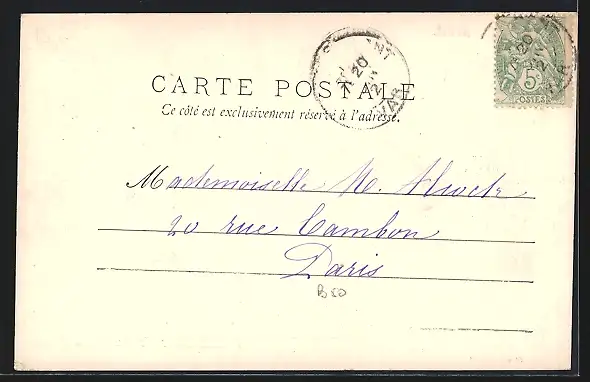 CARTE POSTALE
Ce côté est exclusivement réservé à l'adresse.
Mademoiselle M.
20 rue Cambon
Paris
B50
5c
POSTES
20
VAR
20